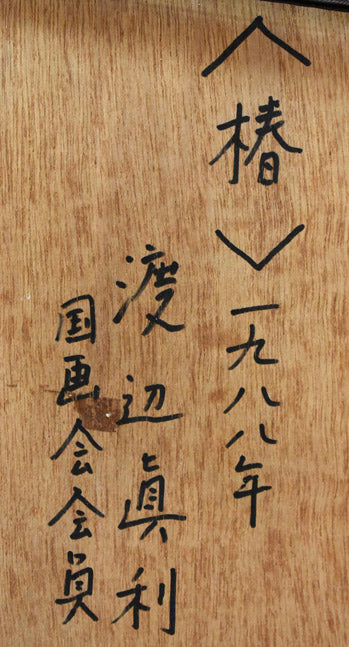 〈椿〉一九八八年
渡辺眞利
国画会会員